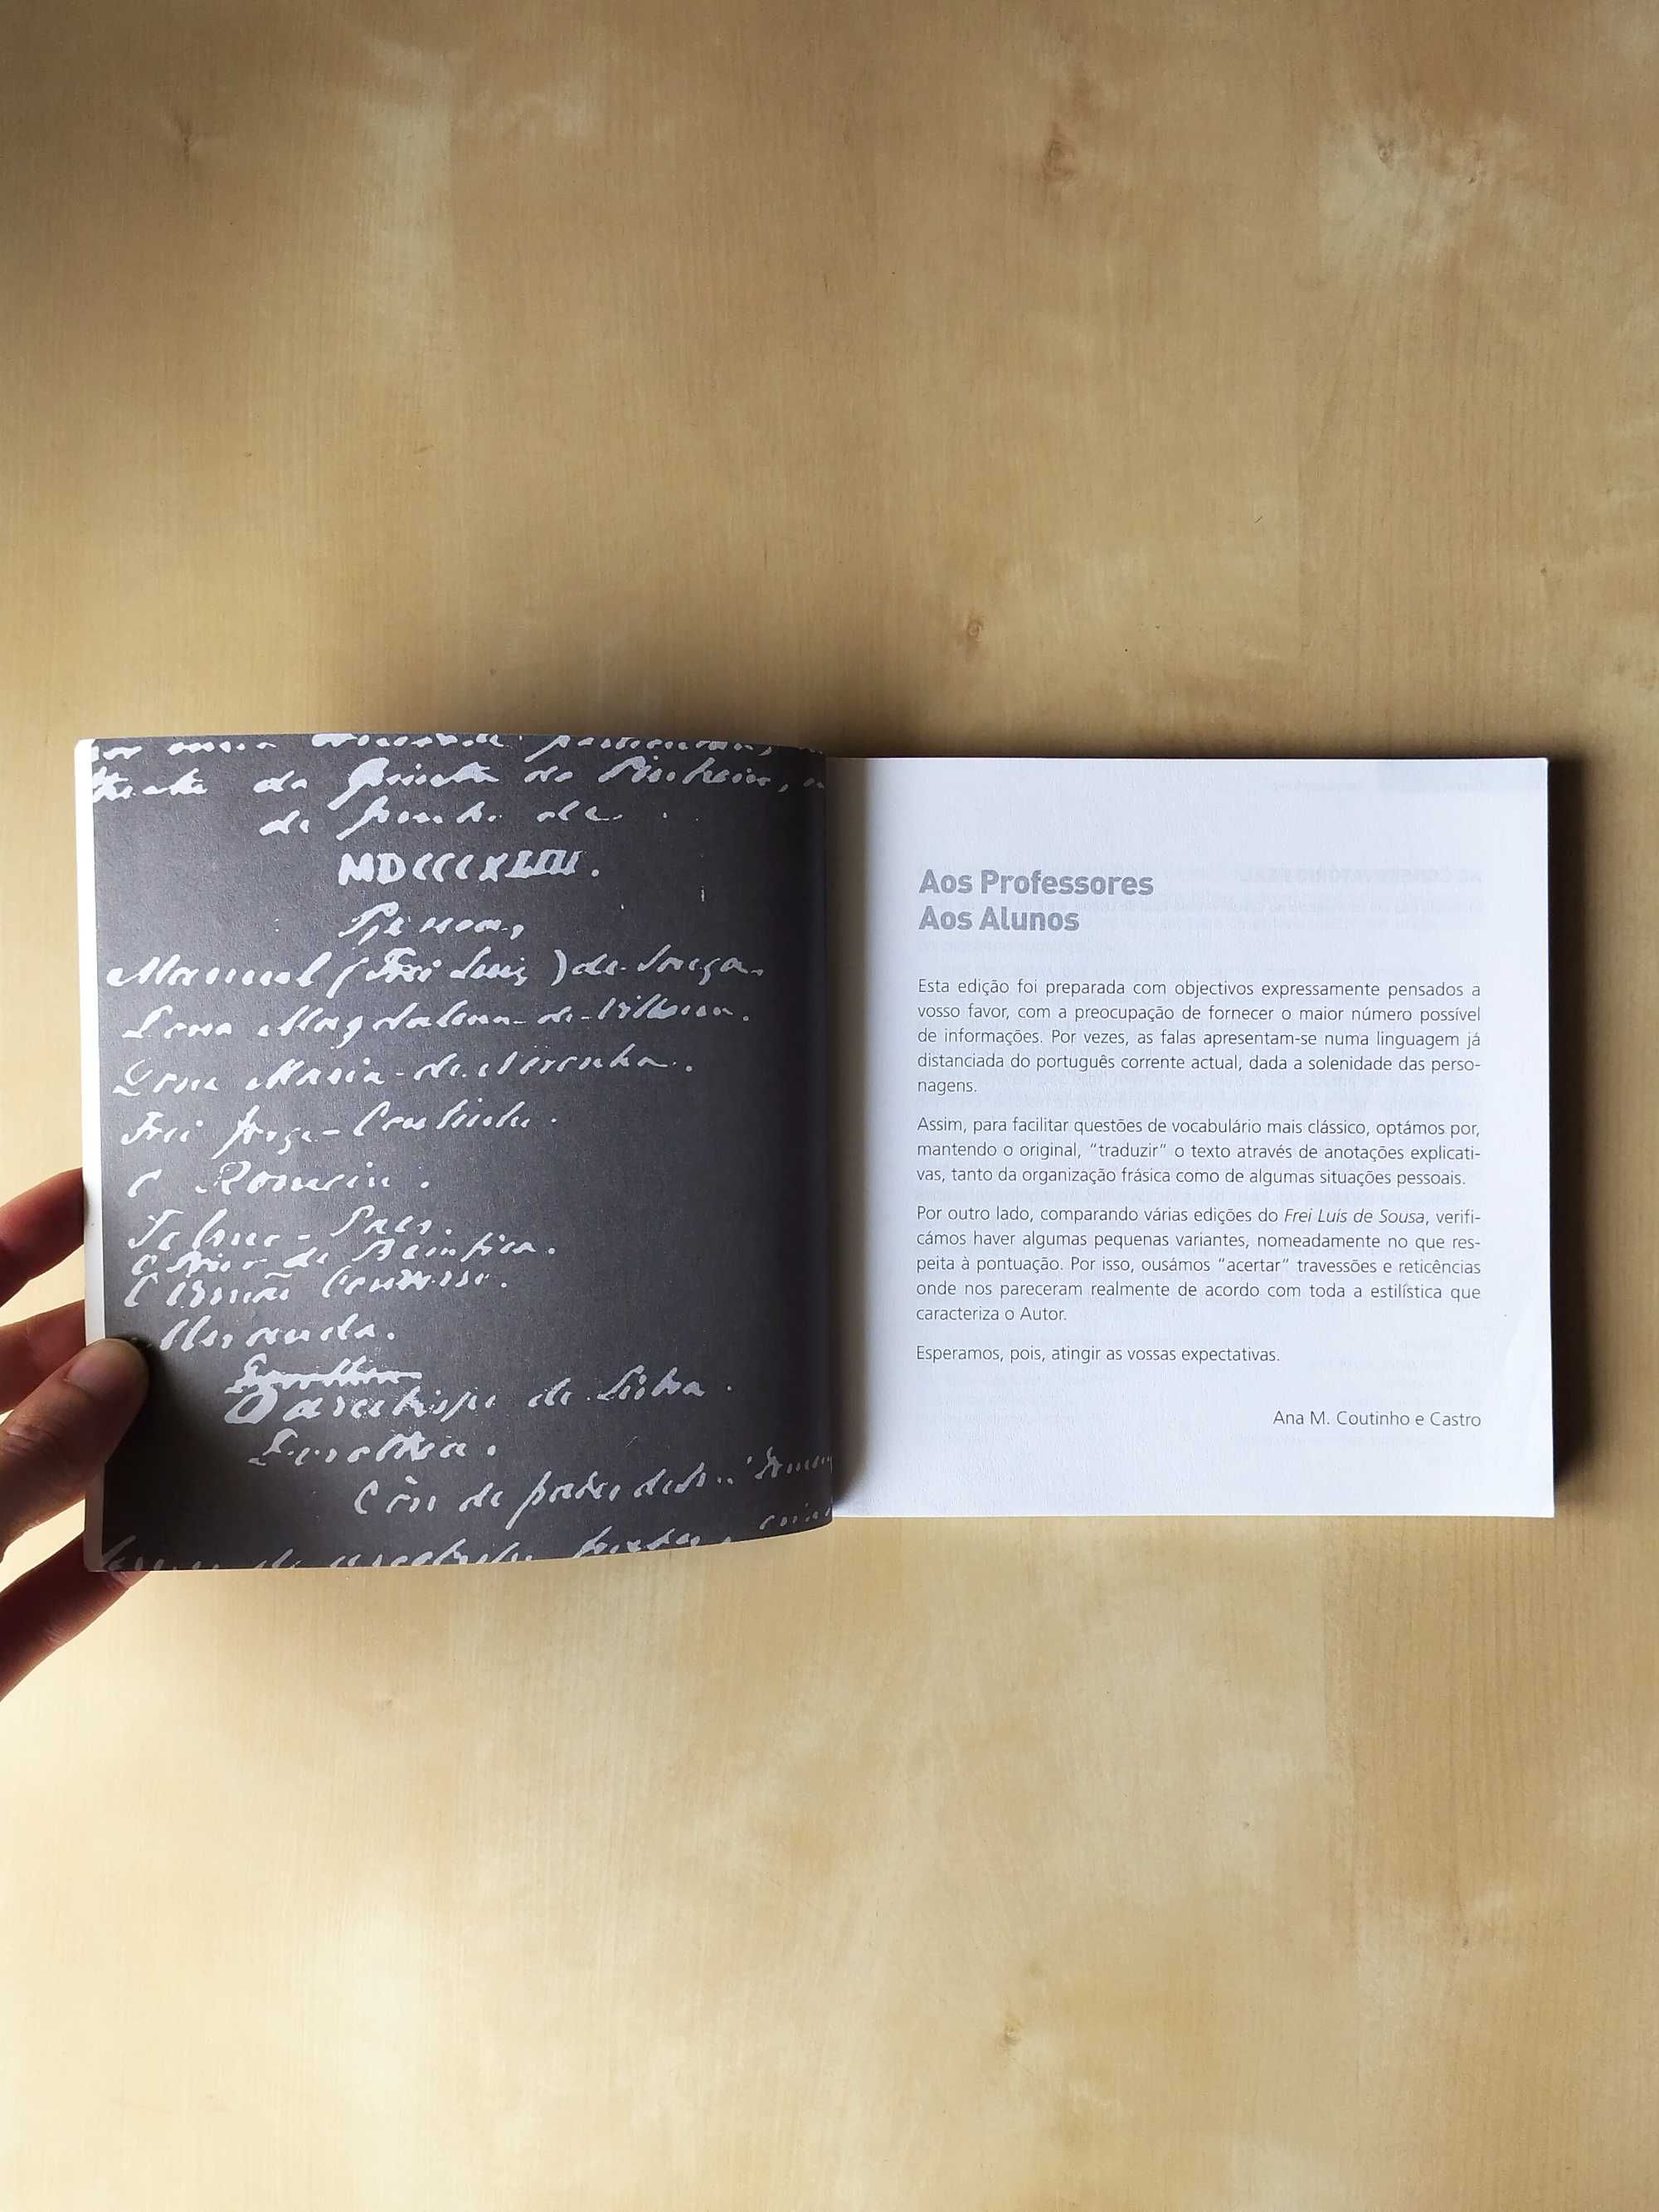 da Quinta do Pinheiro,
de Junho de
MDCCCXLIII.
Pessoas,
Manuel (Frei Luiz) de Sousa.
Dona Magdalena-de-Vilhena.
Dona Maria-de-Noronha.
Frei Jorge-Coutinho.
O Romeiro.
Telmo-Paes.
O Prior de Bemfica.
O Irmão Converso.
Miranda.
O arcebispo de Lisboa.
Dorothea.
Côro de padres de
Aos Professores
Aos Alunos
Esta edição foi preparada com objectivos expressamente pensados a
vosso favor, com a preocupação de fornecer o maior número possível
de informações. Por vezes, as falas apresentam-se numa linguagem já
distanciada do português corrente actual, dada a solenidade das perso-
nagens.
Assim, para facilitar questões de vocabulário mais clássico, optámos por,
mantendo o original, “traduzir” o texto através de anotações explicati-
vas, tanto da organização frásica como de algumas situações pessoais.
Por outro lado, comparando várias edições do Frei Luís de Sousa, verifi-
cámos haver algumas pequenas variantes, nomeadamente no que res-
peita à pontuação. Por isso, ousámos “acertar” travessões e reticências
onde nos pareceram realmente de acordo com toda a estilística que
caracteriza o Autor.
Esperamos, pois, atingir as vossas expectativas.
Ana M. Coutinho e Castro